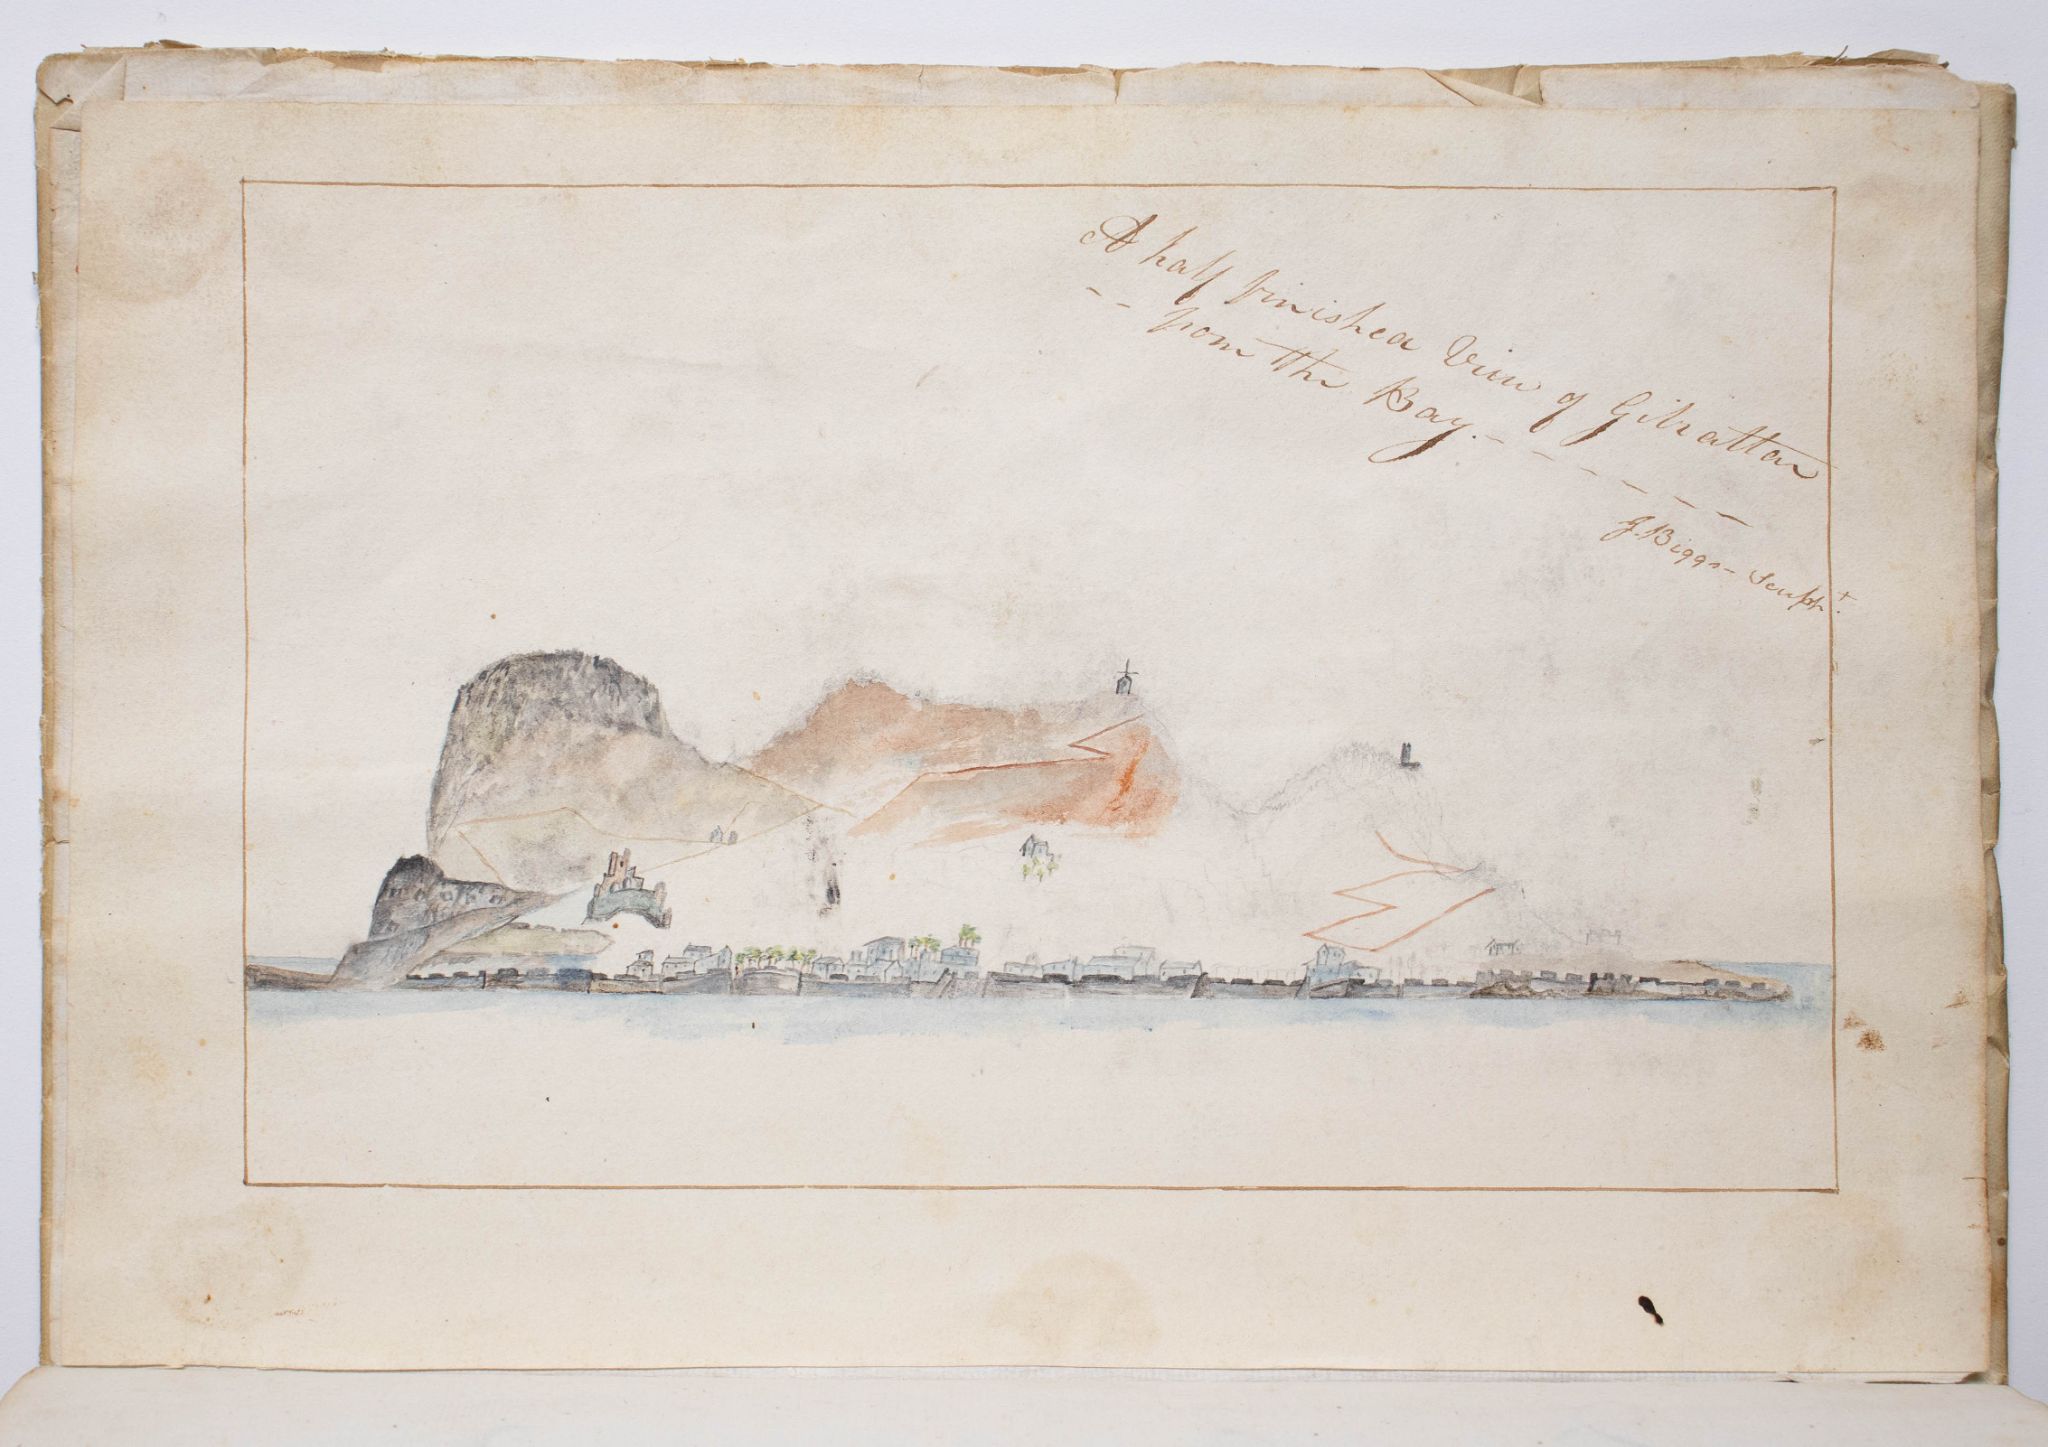 A half finished View of Gibralttar
-- from the Bay.------
J. Biggs - Sculpt.